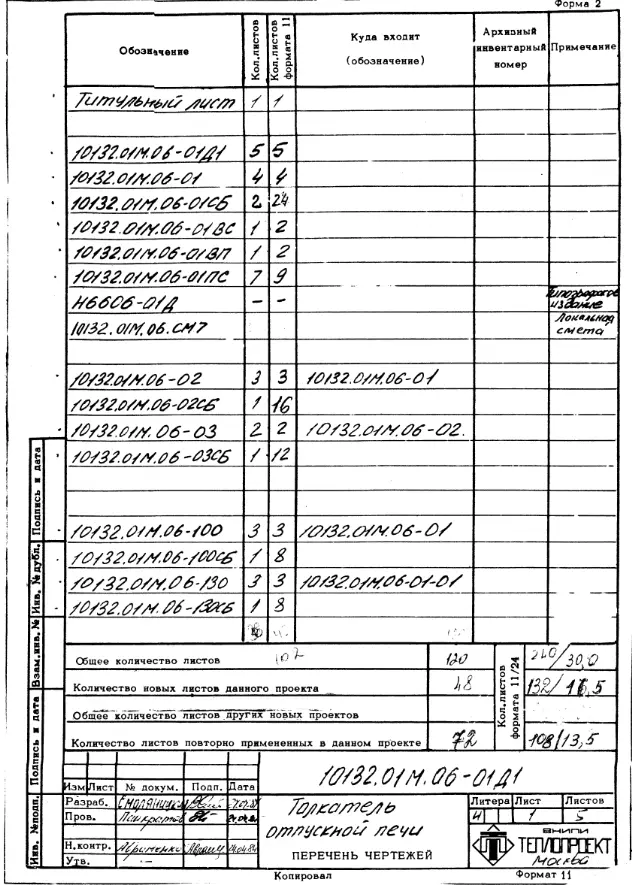 Форма 2
Обозначение Кол.листов Кол.листов формата 11 Куда входит (обозначение) Архивный инвентарный номер Примечание
Титульный лист 1 1
10132.01М.06-01Д1 5 5
10132.01М.06-01 4 4
10132.01М.06-01СБ 2 24
10132.01М.06-01ВС 1 2
10132.01М.06-01ВП 1 2
10132.01М.06-01ПС 7 9
Н6606-01Д – – издание
10132.01М.06.СМ7 Локальная смета
10132.01М.06-02 3 3 10132.01М.06-01
10132.01М.06-02СБ 1 16
10132.01М.06-03 2 2 10132.01М.06-02.
10132.01М.06-03СБ 1 12
10132.01М.06-100 3 3 10132.01М.06-01
10132.01М.06-100СБ 1 8
10132.01М.06-130 3 3 10132.01М.06-01-01
10132.01М.06-130СБ 1 8
Общее количество листов 107 120 Кол.листов формата 11/24 240/30,0
Количество новых листов данного проекта 48 132/16,5
Общее количество листов других новых проектов
Количество листов повторно примененных в данном проекте 72 108/13,5
Инв. №подл. Подпись и дата Взам.инв. № Инв. №дубл. Подпись и дата
10132.01М.06-01Д1
Изм Лист № докум. Подп. Дата
Разраб.
Пров.
Н.контр.
Утв. –
Толкатель
отпускной печи
ПЕРЕЧЕНЬ ЧЕРТЕЖЕЙ
Литера Лист Листов
И 1 5
ВНИПИ
ТЕПЛОПРОЕКТ
Москва
Копировал Формат 11